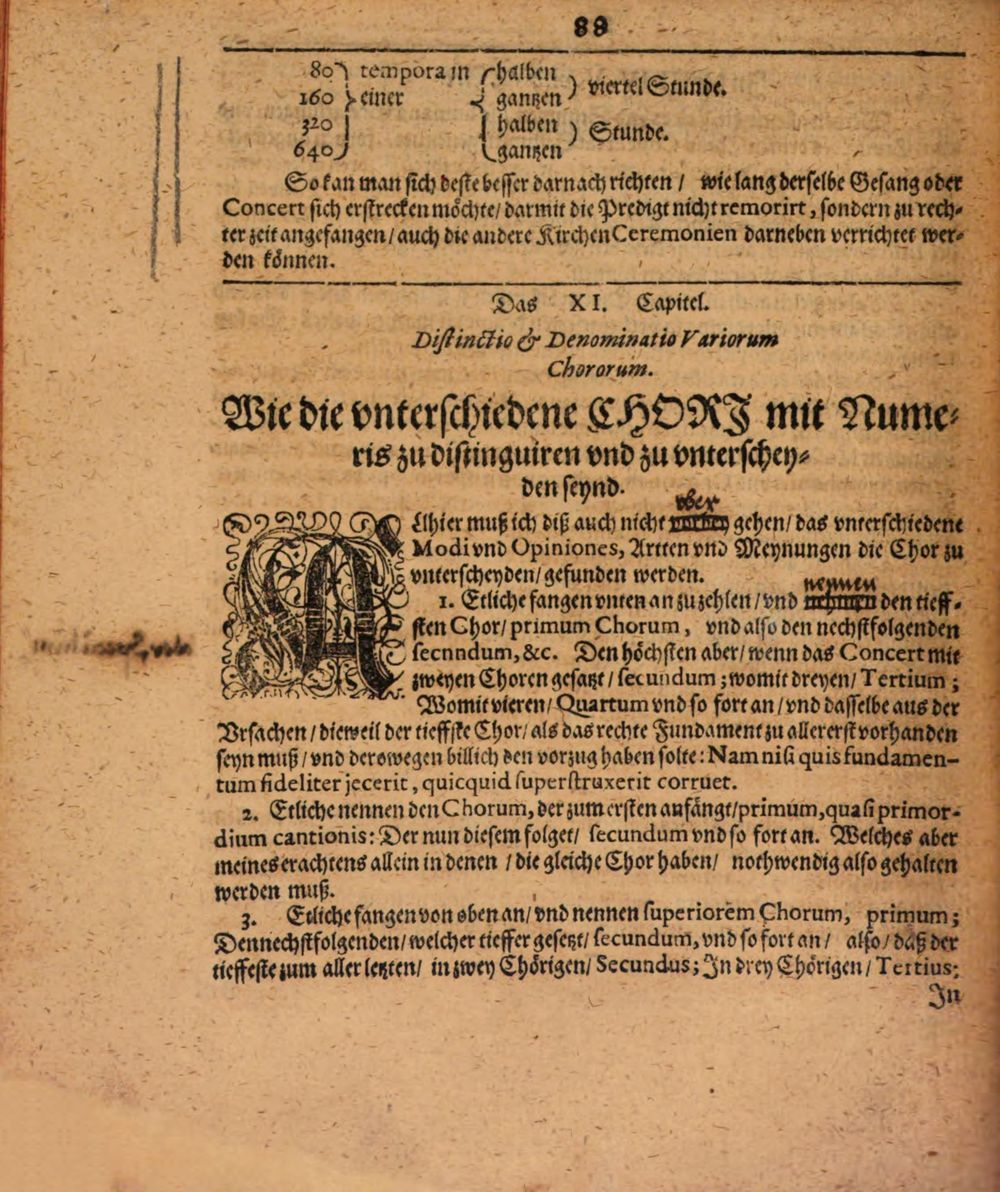 88
80 tempora in halben viertel Stunde.
160 einer gantzen
320 halben Stunde.
640 gantzen
So kan man sich deste besser darnach richten / wie lang derselbe Gesang oder
Concert sich erstrecken möchte/ darmit die Predigt nicht remorirt, sondern zu rech⸗
ter zeit angefangen/ auch die andere KirchenCeremonien darneben verrichtet wer⸗
den können.
Das XI. Capitel.
Distinctio & Denominatio Variorum
Chororum.
Wie die vnterschiedene CHORI mit Nume⸗
ris zu distinguiren vnd zu vnterschey⸗
den seynd.
vber
Alhier muß ich diß auch nicht gehen/ das vnterschiedene
Modi vnd Opiniones, Artten vnd Meynungen die Chor zu
vnterscheyden/ gefunden werden.
nennen
1. Etliche fangen vnten an zu zehlen/ vnd nehmen den tieff⸗
sten Chor/ primum Chorum, vnd also den nechstfolgenden
secnndum, &c. Den höchsten aber/ wenn das Concert mit
zweyen Choren gesatzt/ secundum; womit dreyen/ Tertium;
Womit vieren/ Quartum vnd so fort an/ vnd dasselbe aus der
Vrsachen/ dieweil der tieffste Chor/ als das rechte Fundament zu allererst vorhanden
seyn muß/ vnd derowegen billich den vorzug haben solte: Nam nisi quis fundamen-
tum fideliter jecerit, quicquid superstruxerit corruet.
2. Etliche nennen den Chorum, der zum ersten anfängt/ primum, quasi primor-
dium cantionis: Der nun diesem folget/ secundum vnd so fort an. Welches aber
meines erachtens allein in denen / die gleiche Chor haben/ nothwendig also gehalten
werden muß.
3. Etliche fangen von oben an/ vnd nennen superiorem Chorum, primum;
Den nechstfolgenden/ welcher tieffer gesetzt/ secundum, vnd so fort an/ also/ daß der
tieffeste zum aller letzten/ in zwey Chörigen/ Secundus; In drey Chörigen/ Tertius;
In